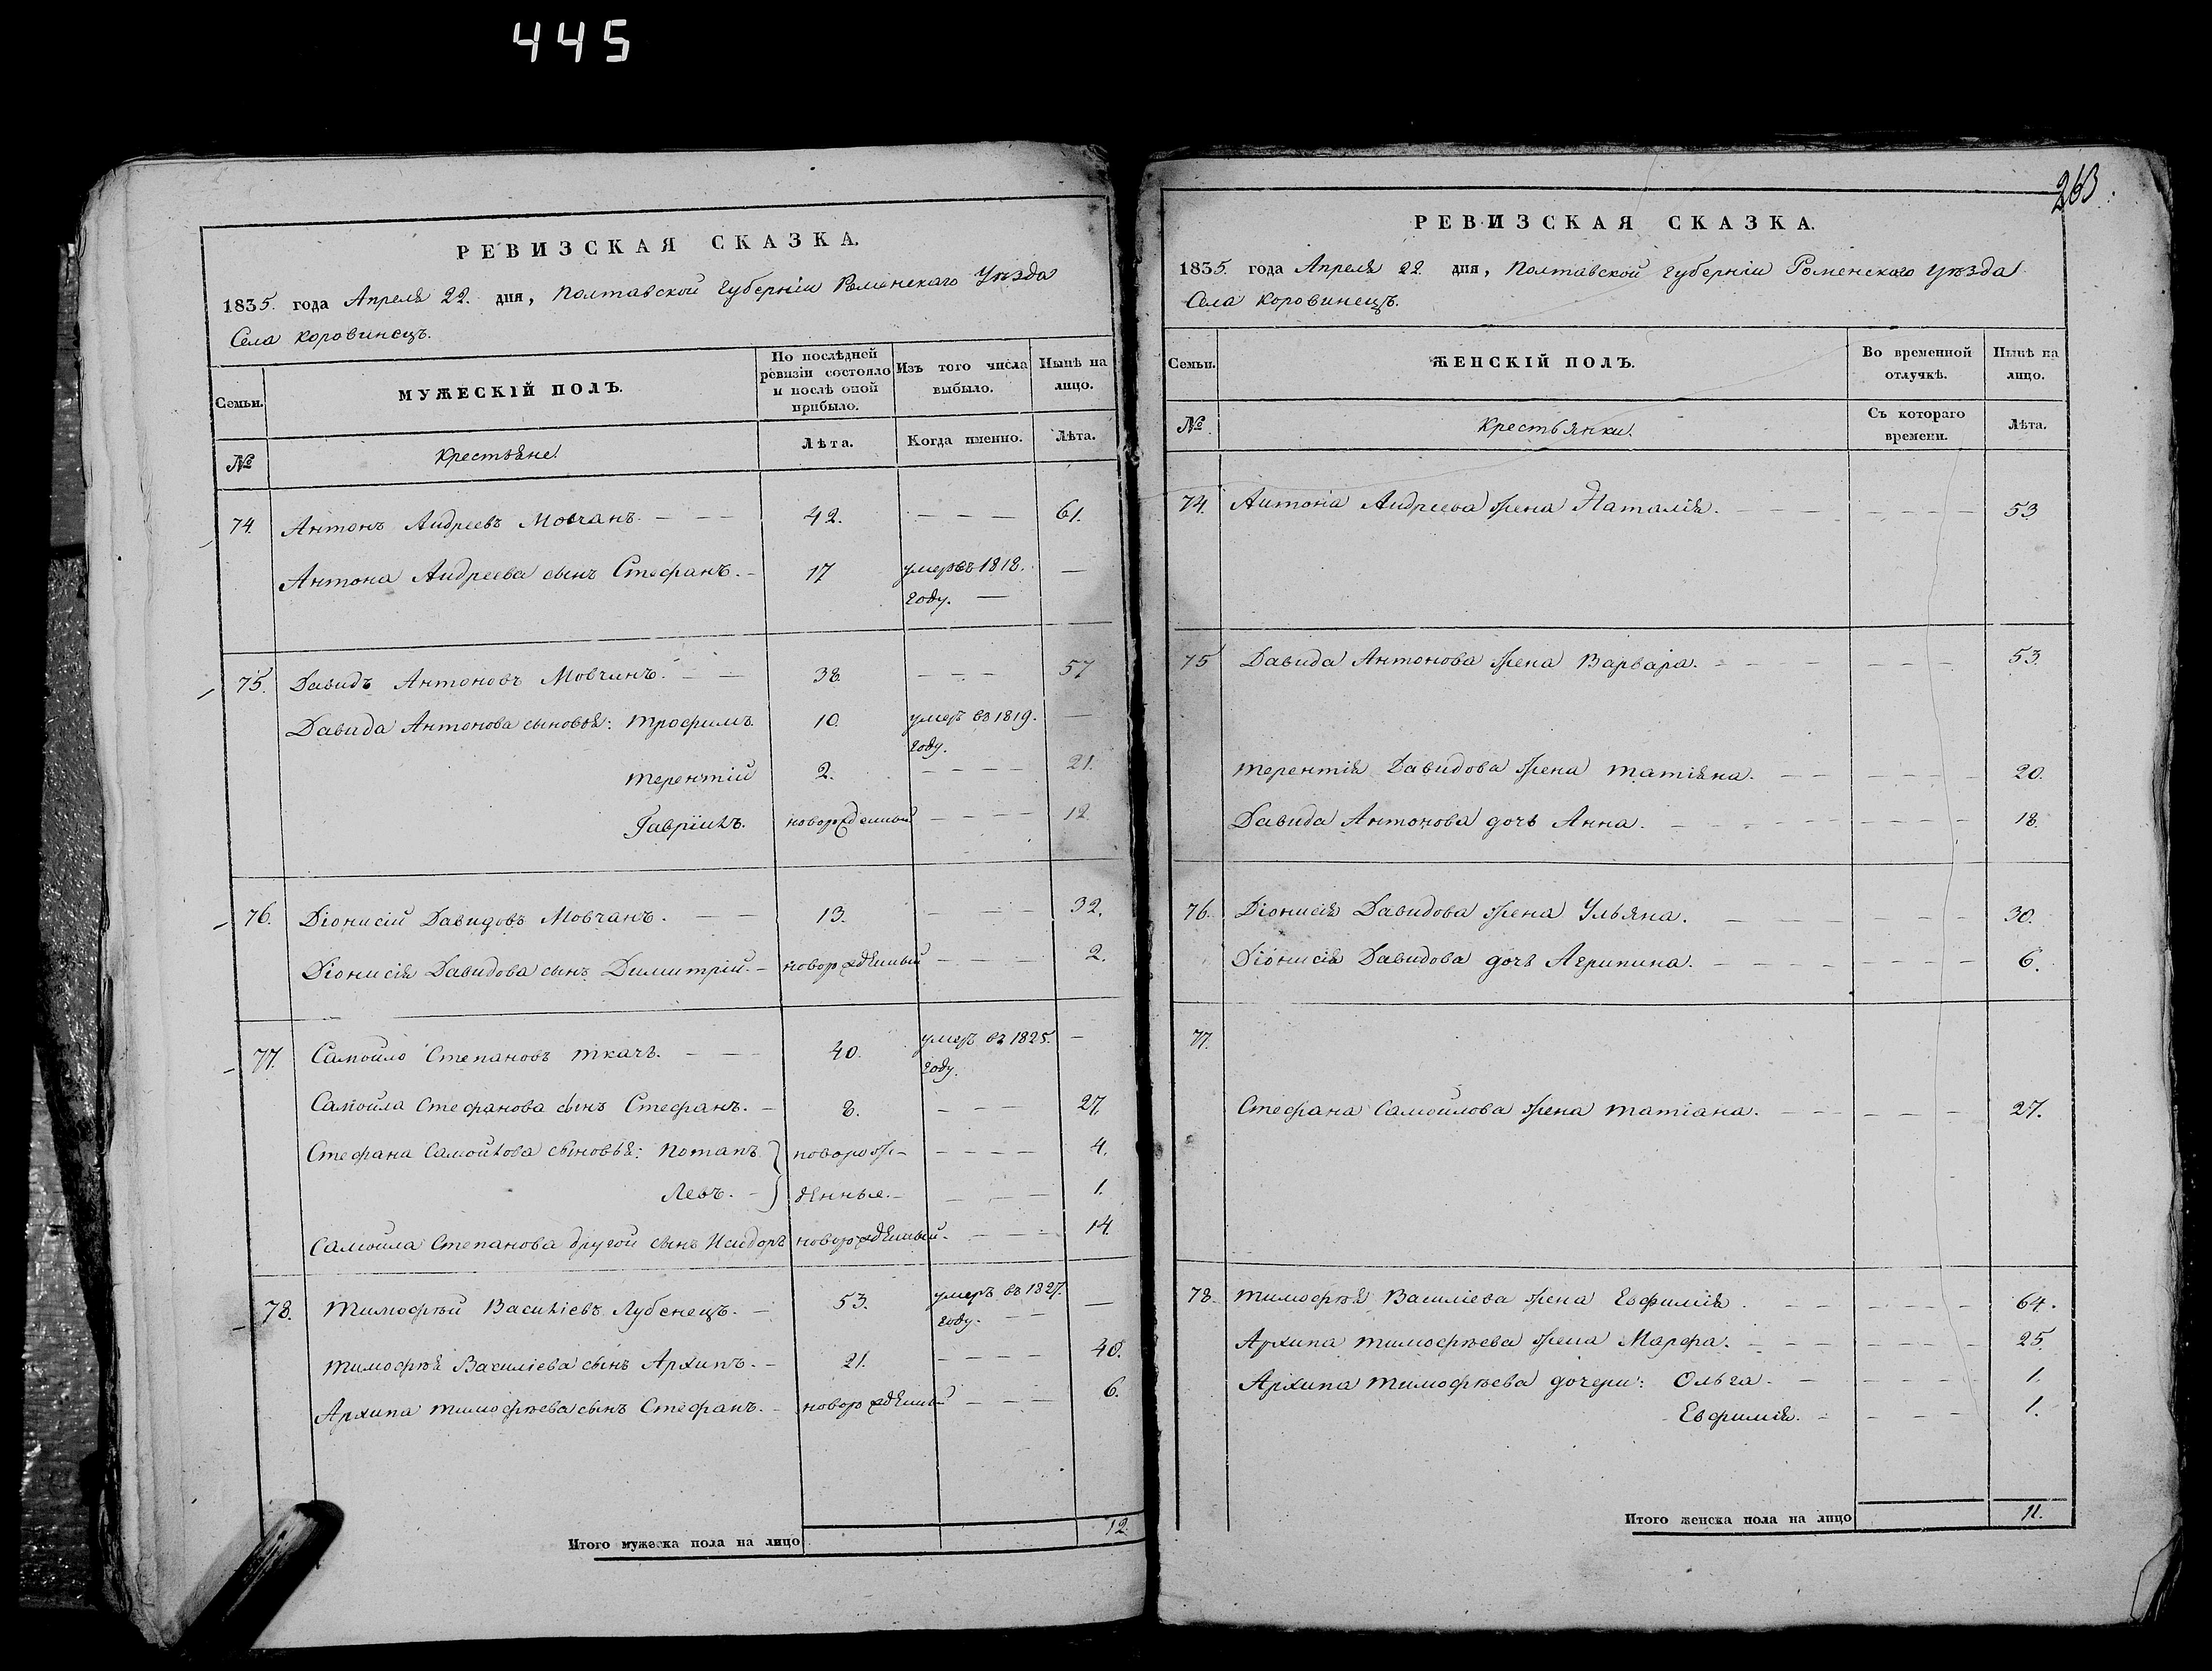 445
РЕВИЗСКАЯ СКАЗКА.
1835. года Апреля 22. дня, Полтавской губерніи Роменскаго Уѣзда
Села Коровинецъ.
Семьи.
МУЖЕСКІЙ ПОЛЪ.
По послѣдней ревизіи состояло и послѣ оной прибыло.
Изъ того числа выбыло.
Нынѣ на лицо.
№
Крестьяне.
Лѣта.
Когда именно.
Лѣта.
74. Антонъ Андреевъ Мовчанъ. — — — 42. — — — 61.
Антона Андреева сынъ Стефанъ. — 17 умеръ въ 1818. —
году. —
75. Давидъ Антоновъ Мовчанъ. — — 38. — — — 57
Давида Антонова сыновья: Трофимъ 10. умеръ въ 1819. —
году.
Терентій 2. — — — — 21.
Гавріилъ. новорожденный — — — — 12
76. Діонисій Давидовъ Мовчанъ. — — 13. — — 32.
Діонисія Давидова сынъ Димитрій. — новорожденный — — — 2.
77. Самойло Степановъ Ткачъ. — — — 40. умеръ въ 1825. —
году.
Самойла Стефанова сынъ Стефанъ. — 8. — — — 27.
Стефана Самойлова сыновья: Потапъ } новорож- — — — — 4.
Левъ. — } денные. — — — — 1.
Самойла Степанова другой сынъ Исидоръ новорожденный. — — — 14.
78. Тимофѣй Василіевъ Лубенецъ. — 53. умеръ въ 1827. —
году. — —
Тимофѣя Василіева сынъ Архипъ. — 21. — — — — 40.
Архипа Тимофѣева сынъ Стефанъ. — новорожденный — — — 6.
Итого мужеска пола на лицо 12.
263.
РЕВИЗСКАЯ СКАЗКА.
1835. года Апреля 22. дня, Полтавской губерніи Роменскаго уѣзда
Села Коровинецъ.
Семьи.
ЖЕНСКІЙ ПОЛЪ.
Во временной отлучкѣ.
Нынѣ на лицо.
№.
Крестьянки.
Съ котораго времени.
Лѣта.
74. Антона Андреева жена Наталія. — — — — — — — 53
75 Давида Антонова жена Варвара. — — — — — — — 53.
Терентія Давидова жена Татіяна. — — — — — 20.
Давида Антонова дочь Анна. — — — — — — — — 18.
76. Діонисія Давидова жена Ульяна. — — — — — — — 30.
Діонисія Давидова дочь Агрипина. — — — — — — — 6.
77.
Стефана Самойлова жена Татіана. — — — — — — 27.
78. Тимофѣя Василіева жена Евфимія. — — — — — — — 64.
Архипа Тимофѣева жена Марфа. — — — — — — — 25.
Архипа Тимофѣева дочери: Ольга. — — — — — 1.
Евфимія. — — — — 1.
Итого женска пола на лицо 11.